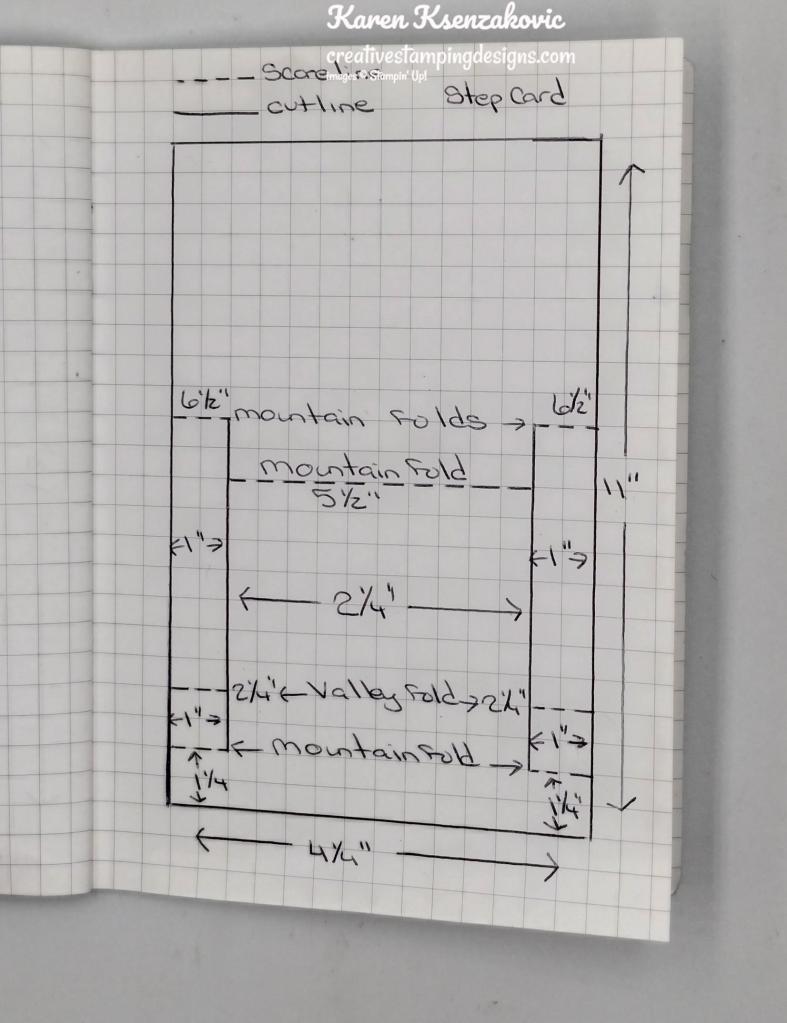 Karen Ksenzakovic
creativestampingdesigns.com
Images © Stampin' Up!
---- Scoreline
—— cutline
Step Card
6½" mountain folds → 6½"
mountain fold
5½"
11"
←1"→ ←1"→
← 2¼" →
2¼" ← Valley fold → 2¼"
←1"→ ←1"→
← mountain fold →
1¼ 1¼"
← 4¼" →